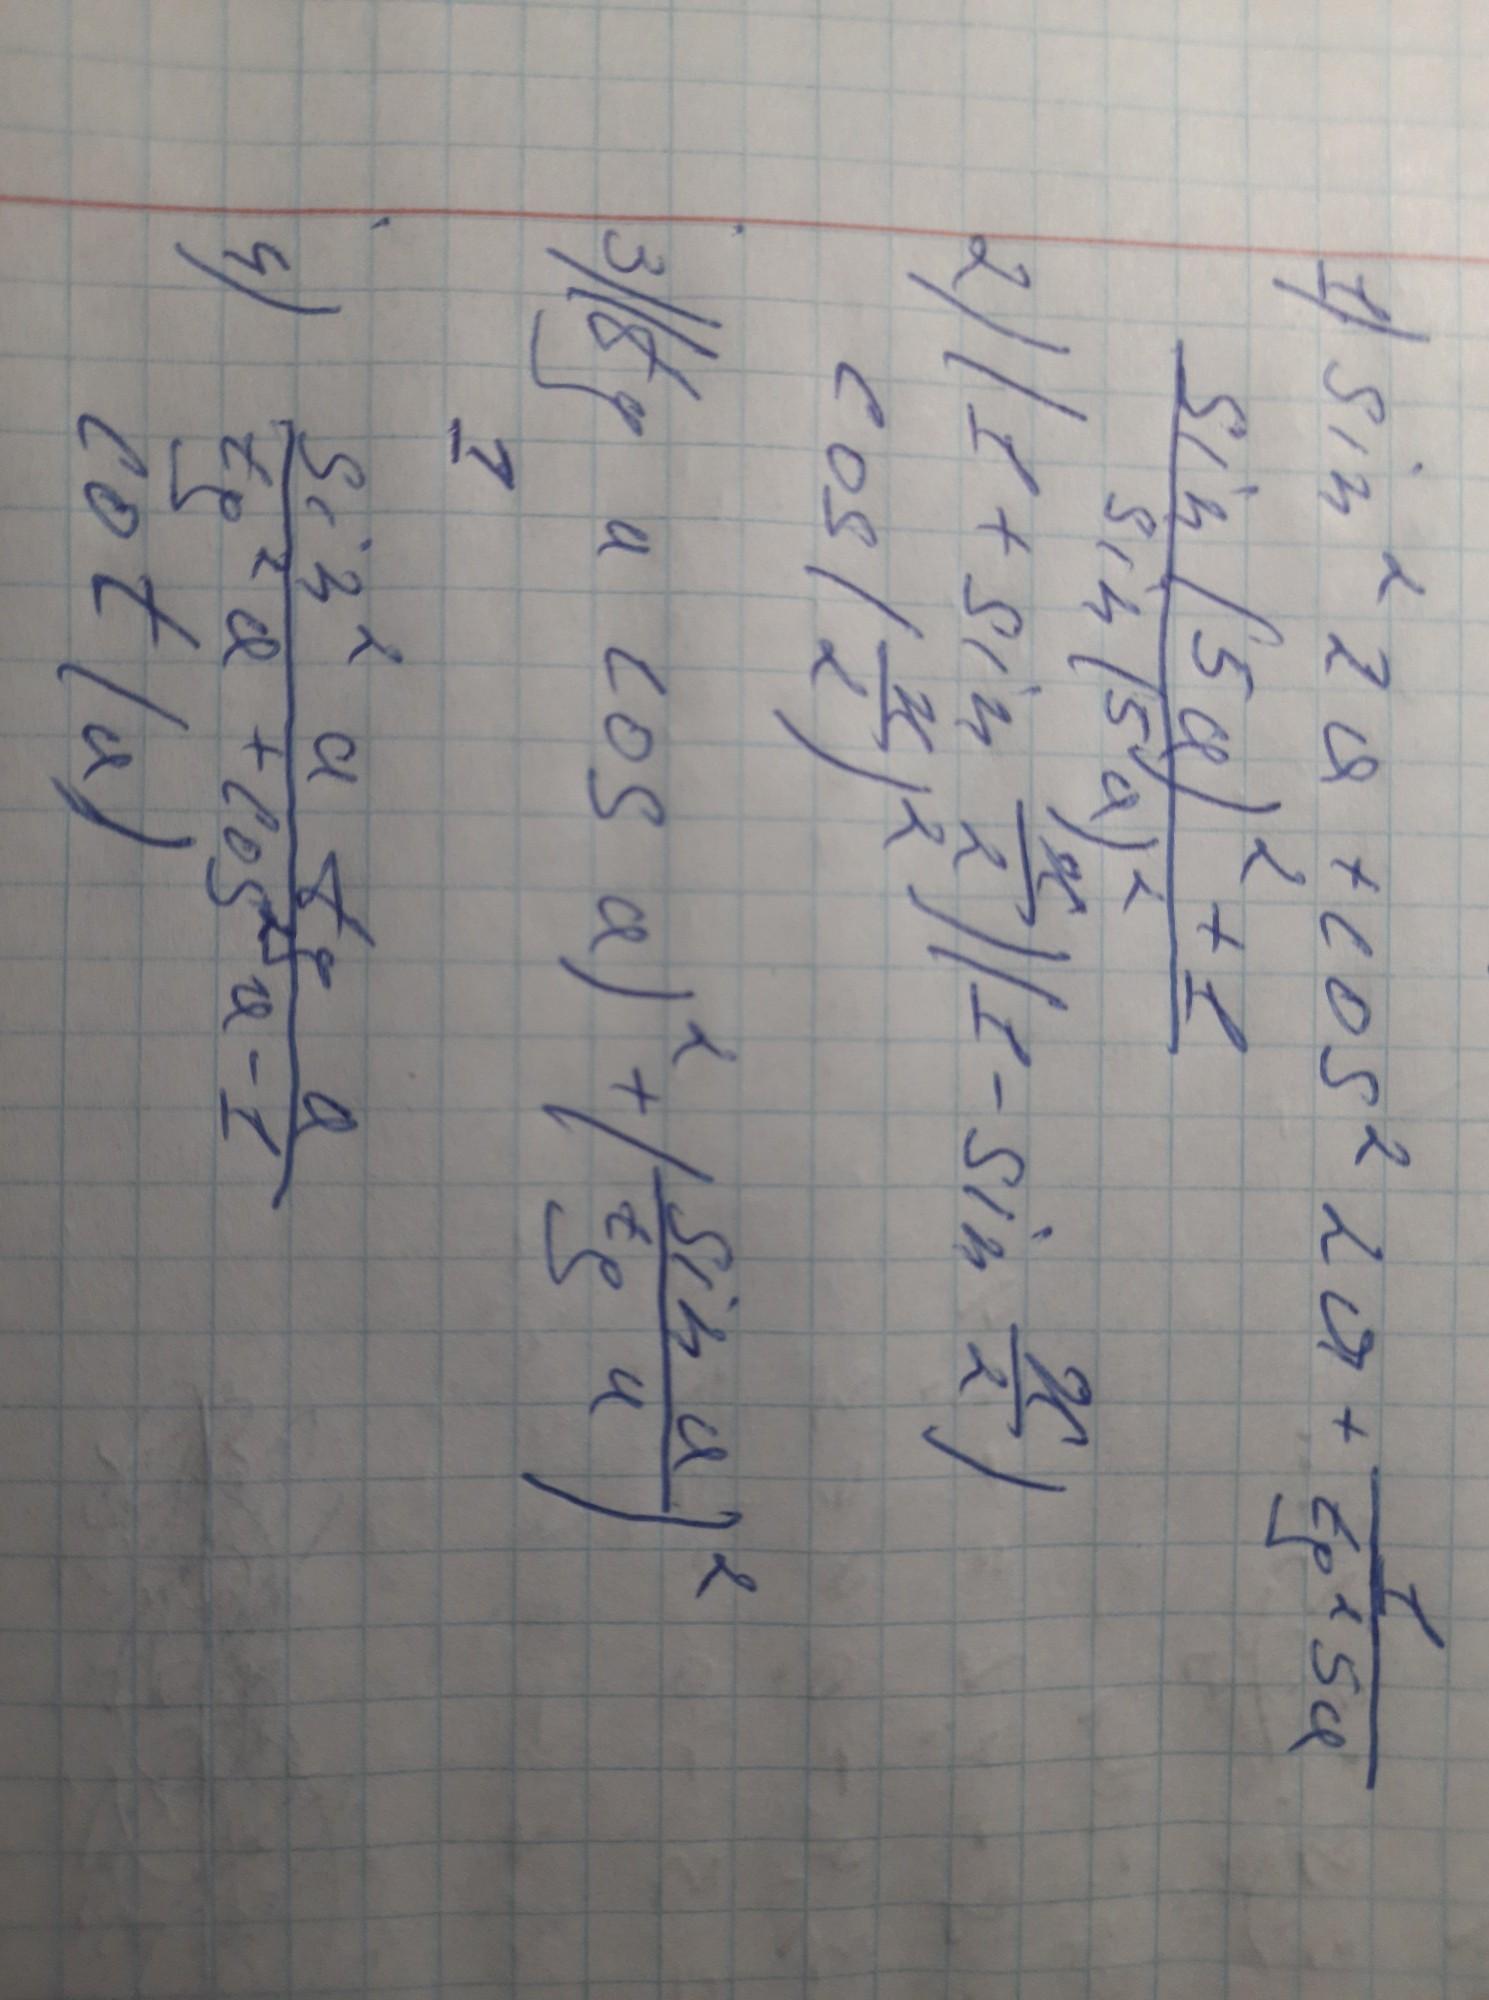 1) sin² 2a + cos² 2a + 1/tg² 5a
sin(5a)² + 1 / sin(5a)²
2) (1 + sin x/2)(1 - sin x/2)
cos(x/2)²
3) (tg a cos a)² + (sin a / tg a)²
1
4) sin² a tg a / tg² a + cos² a - 1
cot(a)